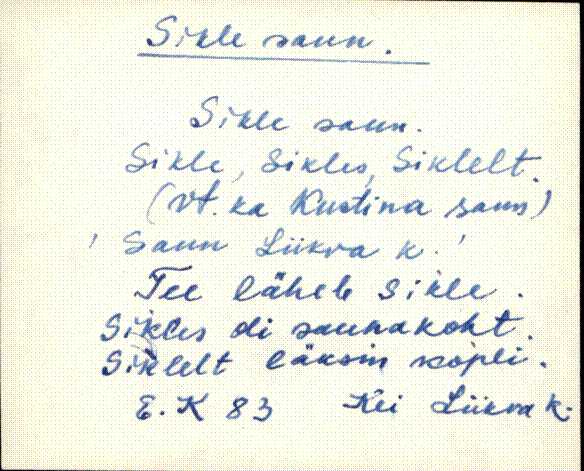 Sikle saun.
Sikle saun.
Sikle, Sikles, Siklelt.
(vt. ka Kustina saun)
' Saun Liikva k.'
Tee läheb Sikle.
Sikles oli saunakoht.
Siklelt läksin kopli.
E. K 83 Kei Liikva k.